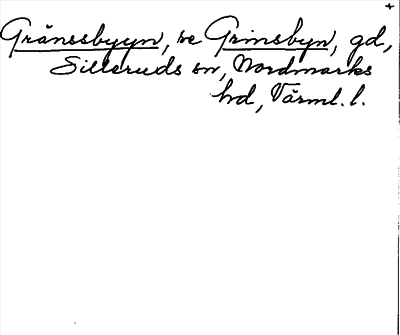 Gränssbyyn, se Grinsbyn, gd,
Silleruds sn, Nordmarks
hd, Värml. l.